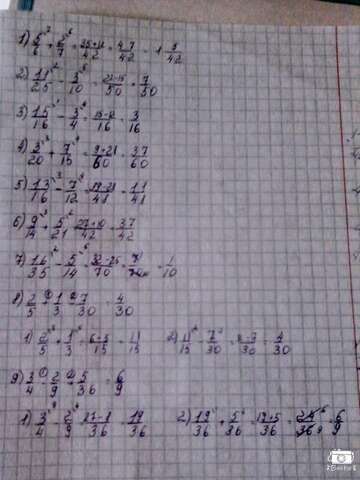 1) 5/6 + 2/7 = 35+12/42 = 47/42 = 1 5/42
2) 11/25 - 3/10 = 22-15/50 = 7/50
3) 15/16 - 3/4 = 15-12/16 = 3/16
4) 3/20 + 7/15 = 9+28/60 = 37/60
5) 13/16 - 7/12 = 39-28/48 = 11/48
6) 9/14 + 5/21 = 27+10/42 = 37/42
7) 16/35 - 5/14 = 32-25/70 = 7/70 = 1/10
8) 2/5 + 1/3 - 7/30 = 4/30
1) 2/5 + 1/3 = 6+5/15 = 11/15 2) 11/15 - 7/30 = 4/30
9) 3/4 - 2/9 + 5/36 = 6/9
1) 3/4 - 2/9 = 27-8/36 = 19/36 2) 19/36 + 5/36 = 19+5/36 = 24/36 = 6/9